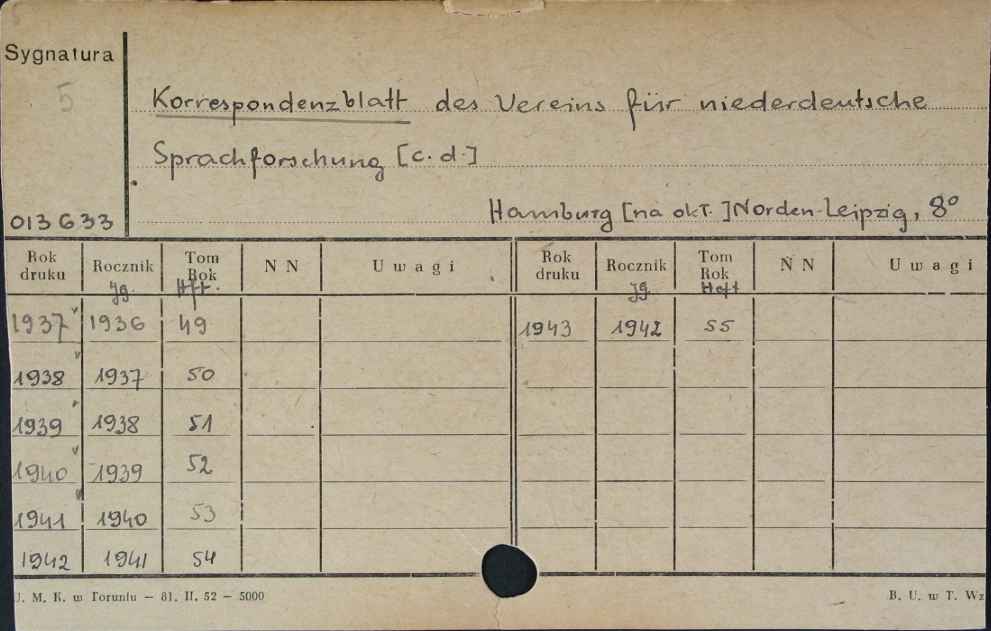 Sygnatura
5
Korrespondenzblatt des Vereins für niederdeutsche
Sprachforschung [c.d.]
Hamburg [na okł.] Norden-Leipzig, 8°
013633
Rok druku Rocznik Tom Rok N N Uwagi Rok druku Rocznik Tom Rok N N Uwagi
Jg. Hft. Jg. Heft
1937 1936 49 1943 1942 55
1938 1937 50
1939 1938 51
1940 1939 52
1941 1940 53
1942 1941 54
U. M. K. w Toruniu — 81. II. 52 — 5000 B. U. w T. Wz